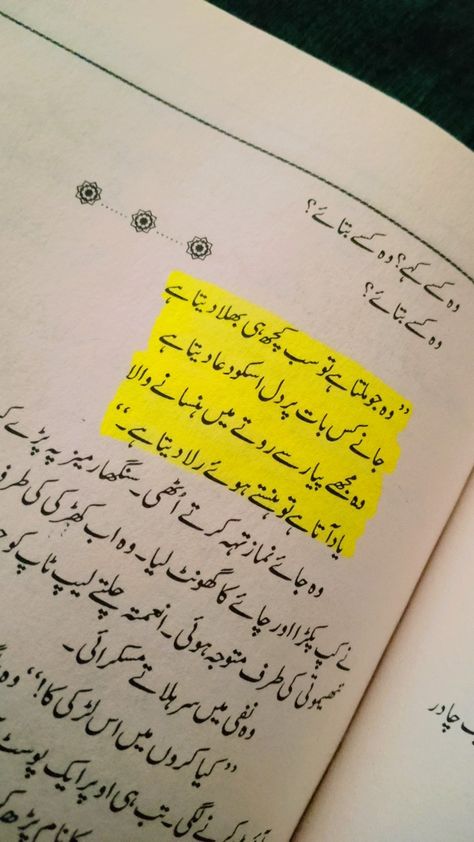 وہ کسے کہے؟ وہ کسے بتائے؟
وہ کسے بتائے؟
”وہ جو ملتا ہے تو سب کچھ ہی بھلا دیتا ہے
جانے کس بات پر دل اسکو دعا دیتا ہے
وہ مجھے پیار سے روتے میں ہنسانے والا
یاد آتا ہے تو ہنستے ہوئے رلا دیتا ہے۔“
وہ جائے نماز تہہ کرتے اُٹھی۔ سنگھار میز پہ پڑے
نے کپ پکڑا اور چائے کا گھونٹ لیا۔ وہ اب کھڑکی کی طرف
تھیوتی کی طرف متوجہ ہوئی۔ انعمتہ چلتے لیپ ٹاپ کو
وہ نفی میں سر ہلاتے مسکرائی۔
”کیا کروں میں اس لڑکی کا!“ وہ
کرنے لگی۔ تب ہی اوپر ایک پوسٹ
کا نام پڑھ
چادر